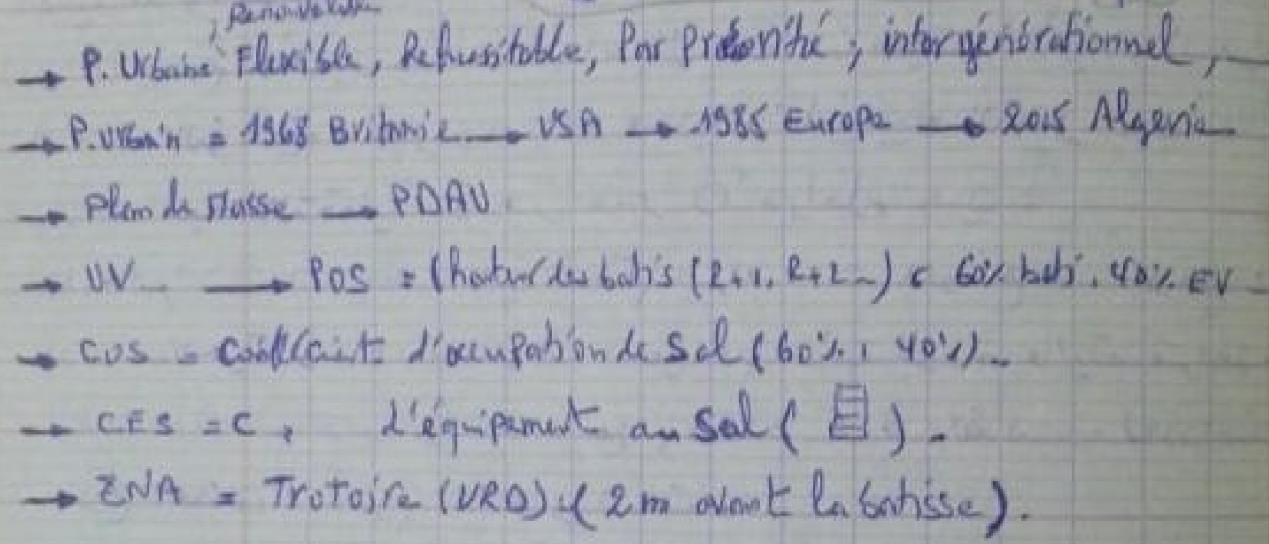 Renouvelable
→ P. Urbains Flexible, Rehussitable, Par Prétorité, intergénérationnel,
→ P. Urbain = 1968 Britanie → USA → 1985 Europe → 2015 Algerie
→ Plan de Masse → PDAU
→ UV → POS = (hateur des batis (R+1, R+2 ...) 60% bati, 40% EV
→ COS = Coefficient d'occupation de Sol (60%, 40%)
→ CES = C, d'équipement au Sol ( ).
→ ZNA = Trotoire (VRD) (2m avant la batisse).